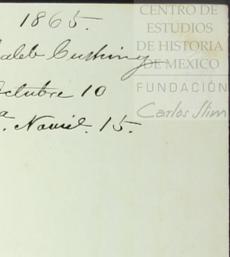 1865.
aleb Cushing
Octubre 10
a. Noviè. 15.
CENTRO DE
ESTUDIOS
DE HISTORIA
DE MEXICO
FUNDACIÓN
Carlos Slim